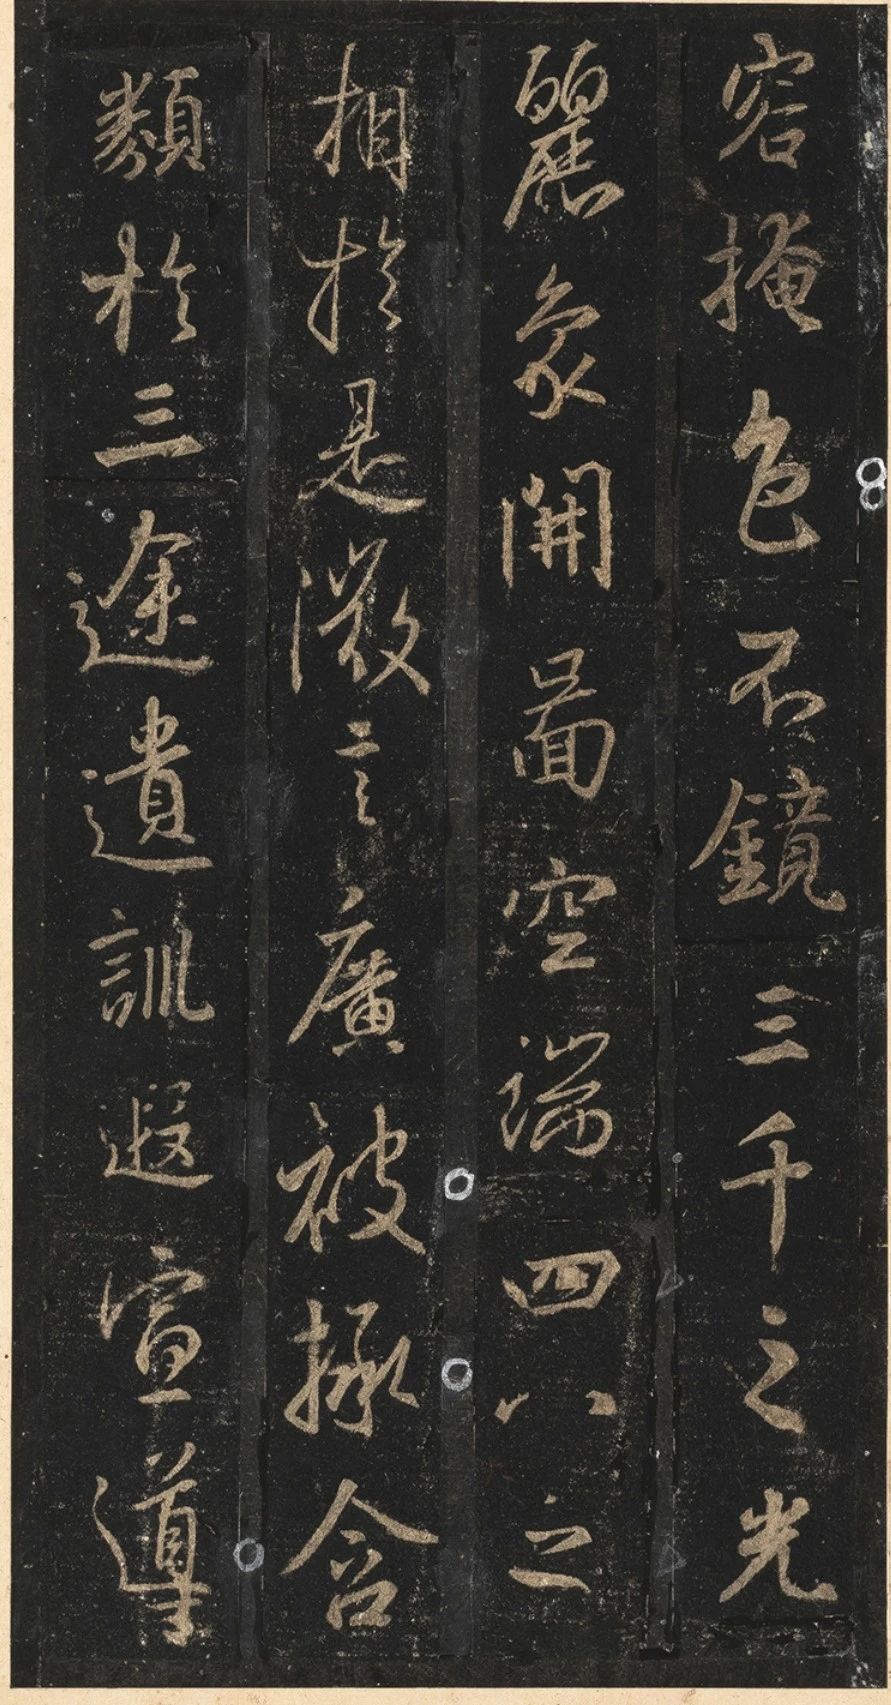 容掩色不鏡三千之光
麗象開圖空端四八之
相於是微言廣被拯含
類於三途遺訓遐宣導